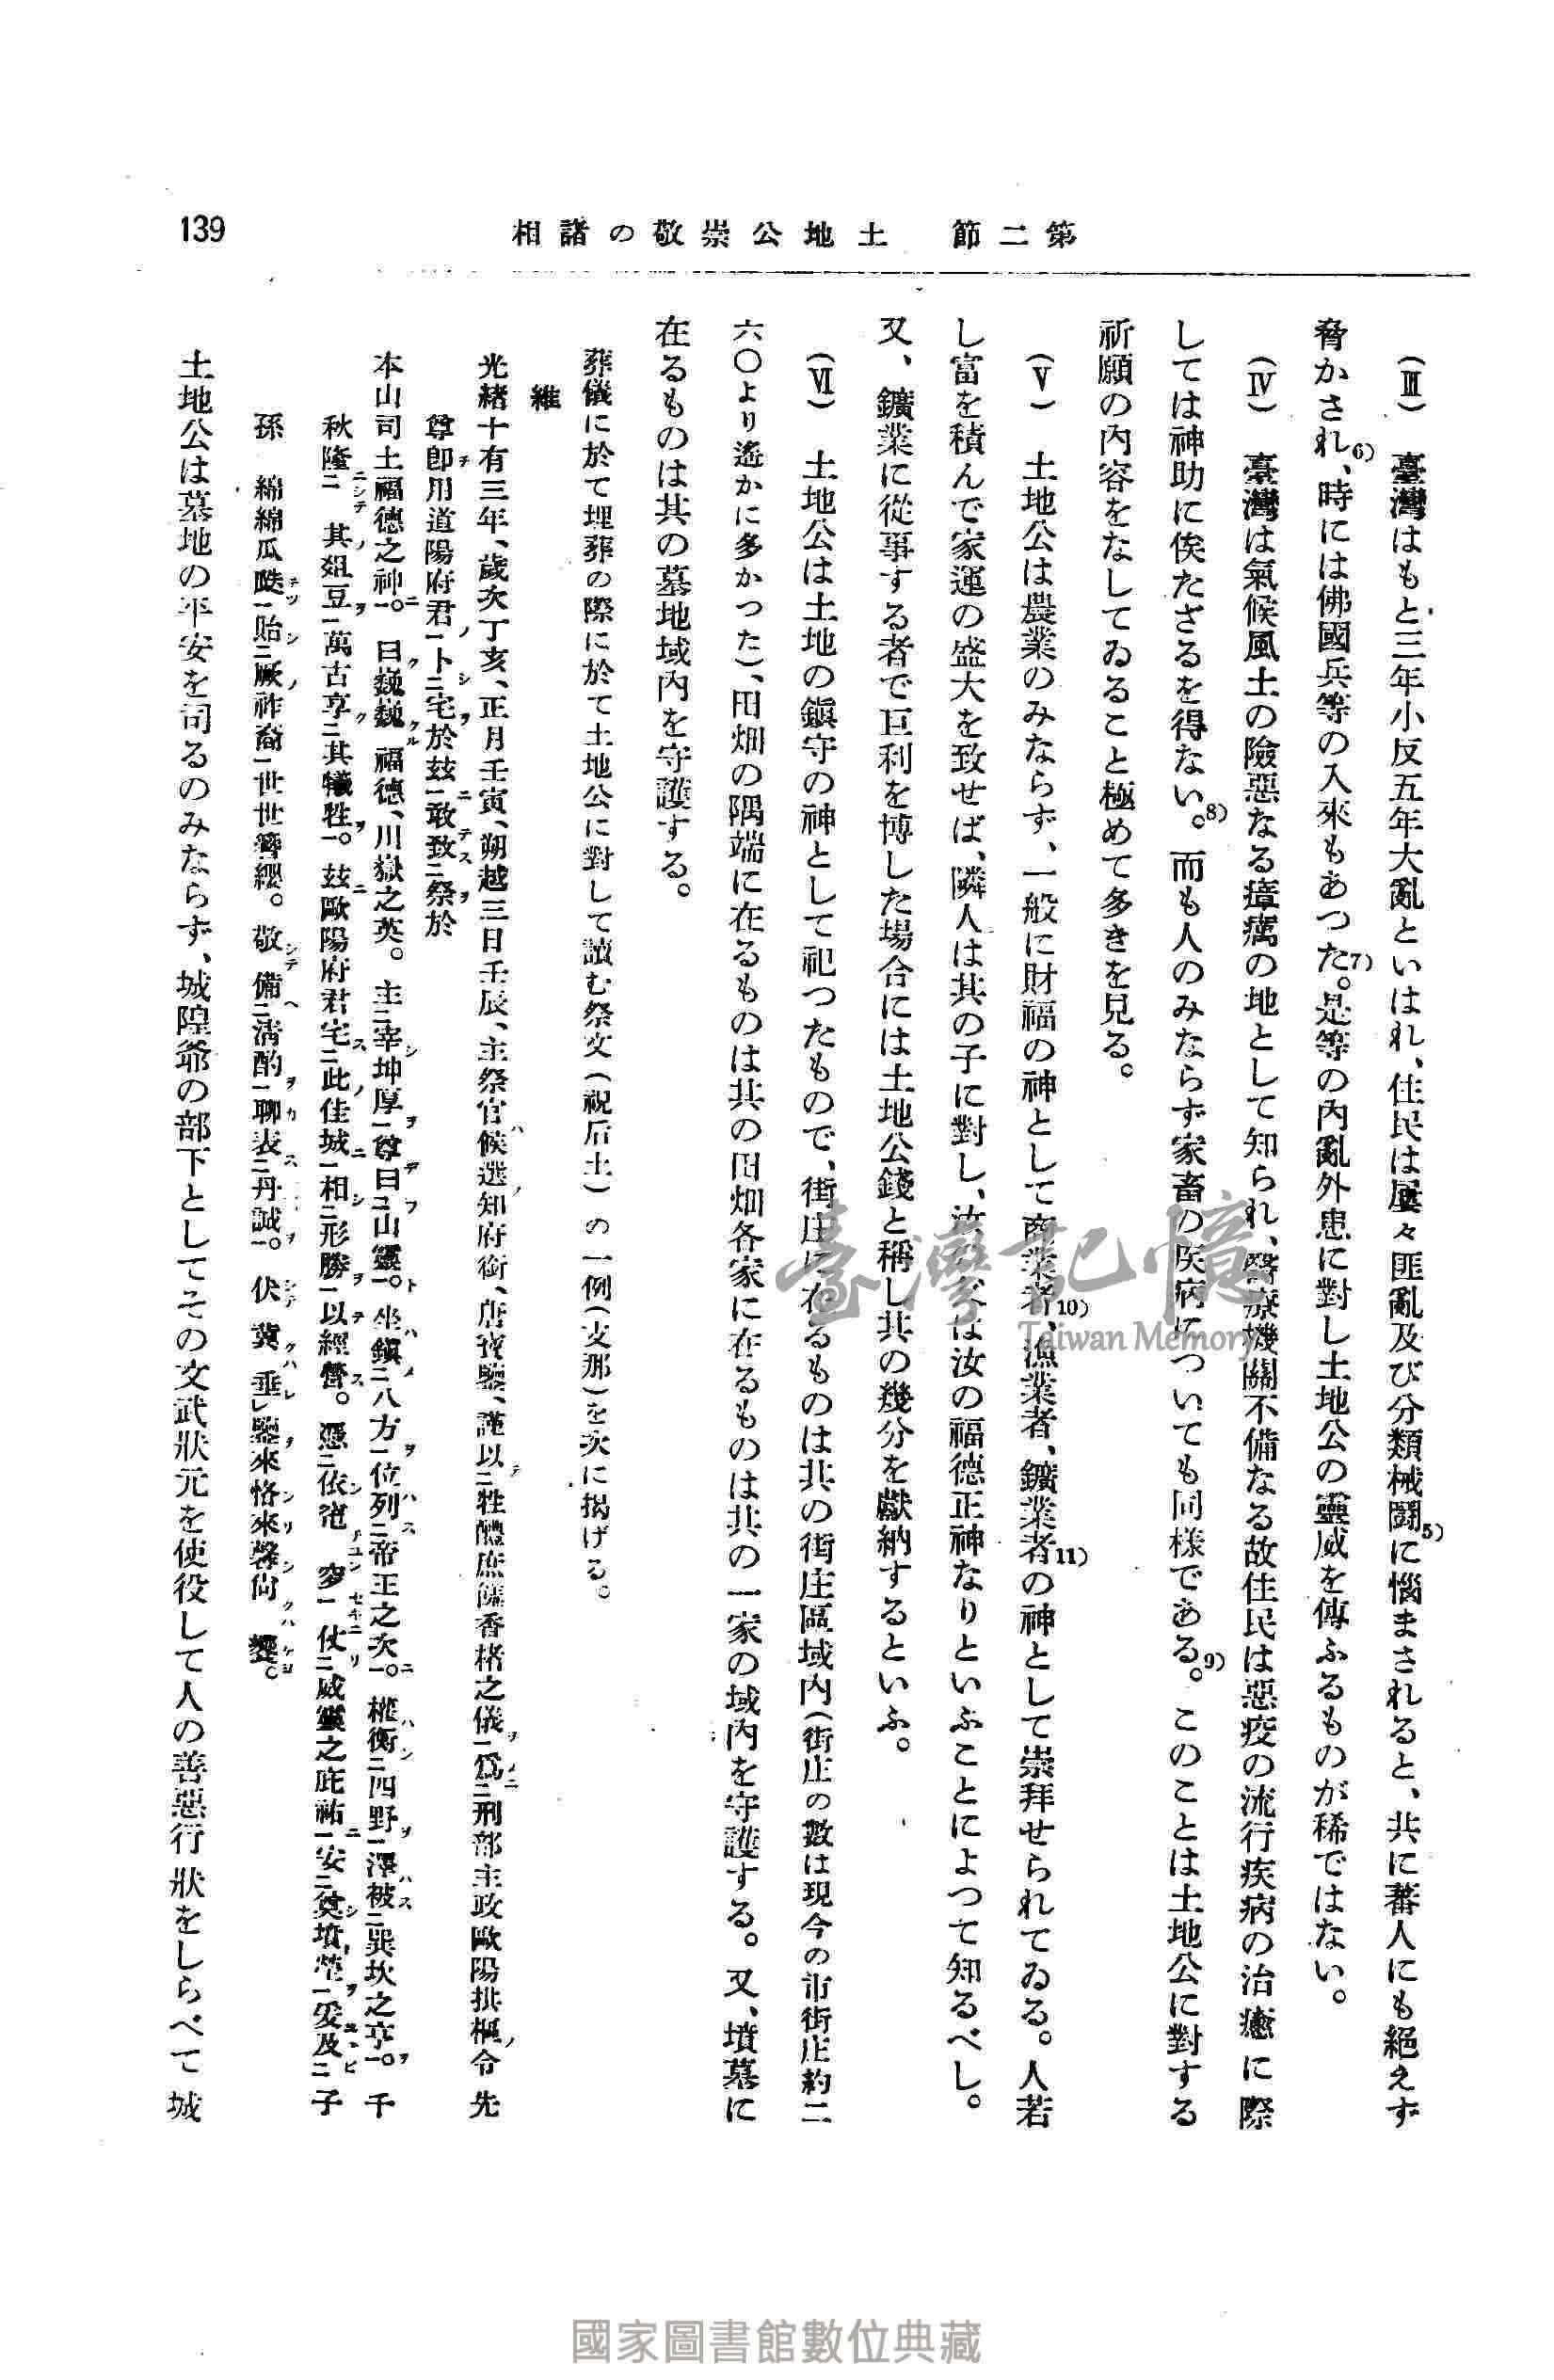 139
第二節　土地公崇敬の諸相
(Ⅲ)　臺灣はもと三年小反五年大亂といはれ、住民は屢々匪亂及び分類械鬪5)に惱まされると、共に蕃人にも絕えず
脅かされ6)、時には佛國兵等の入來もあつた7)。是等の內亂外患に對し土地公の靈威を傳ふるものが稀ではない。
(Ⅳ)　臺灣は氣候風土の險惡なる瘴癘の地として知られ、醫療機關不備なる故住民は惡疫の流行疾病の治癒に際
しては神助に俟たざるを得ない8)。而も人のみならず家畜の疾病についても同樣である9)。このことは土地公に對する
祈願の內容をなしてゐること極めて多きを見る。
(Ⅴ)　土地公は農業のみならず、一般に財福の神として商業者10)、漁業者、鑛業者11)の神として崇拜せられてゐる。人若
し富を積んで家運の盛大を致せば、隣人は其の子に對し、汝の父は汝の福德正神なりといふことによつて知るべし。
又、鑛業に從事する者で巨利を博した場合には土地公錢と稱し其の幾分を獻納するといふ。
(Ⅵ)　土地公は土地の鎭守の神として祀つたもので、街庄に在るものは其の街庄區域內(街庄の數は現今の市街庄約二
六〇より遙かに多かつた)、田畑の隅端に在るものは其の田畑各家に在るものは其の一家の域內を守護する。又、墳墓に
在るものは其の墓地域內を守護する。
葬儀に於て埋葬の際に於て土地公に對して讀む祭文(祝后土)の一例(支那)を次に揭げる。
維
光緖十有三年、歲次丁亥、正月壬寅、朔越三日壬辰、主祭官候選知府銜、唐寶鑒、謹以牲醴庶饈香楮之儀爲刑部主政歐陽拱樞令先
尊卽用道陽府君卜宅於玆敢致祭於
本山司土福德之神。曰巍巍福德、川嶽之英。主宰坤厚尊曰山靈。坐鎭八方位列帝王之次。權衡四野澤被巽坎之亨。千
秋隆其俎豆萬古享其犧牲。玆歐陽府君宅此佳城相形勝以經營。憑依窀穸仗威靈之庇祐安奠墳塋爰及子
孫　綿綿瓜瓞貽厥祚裔世世簪纓。敬備淸酌聊表丹誠。伏冀垂鑒來格來馨尙饗。
土地公は墓地の平安を司るのみならず、城隍爺の部下としてその文武狀元を使役して人の善惡行狀をしらべて城
臺灣記憶
Taiwan Memory
國家圖書館數位典藏